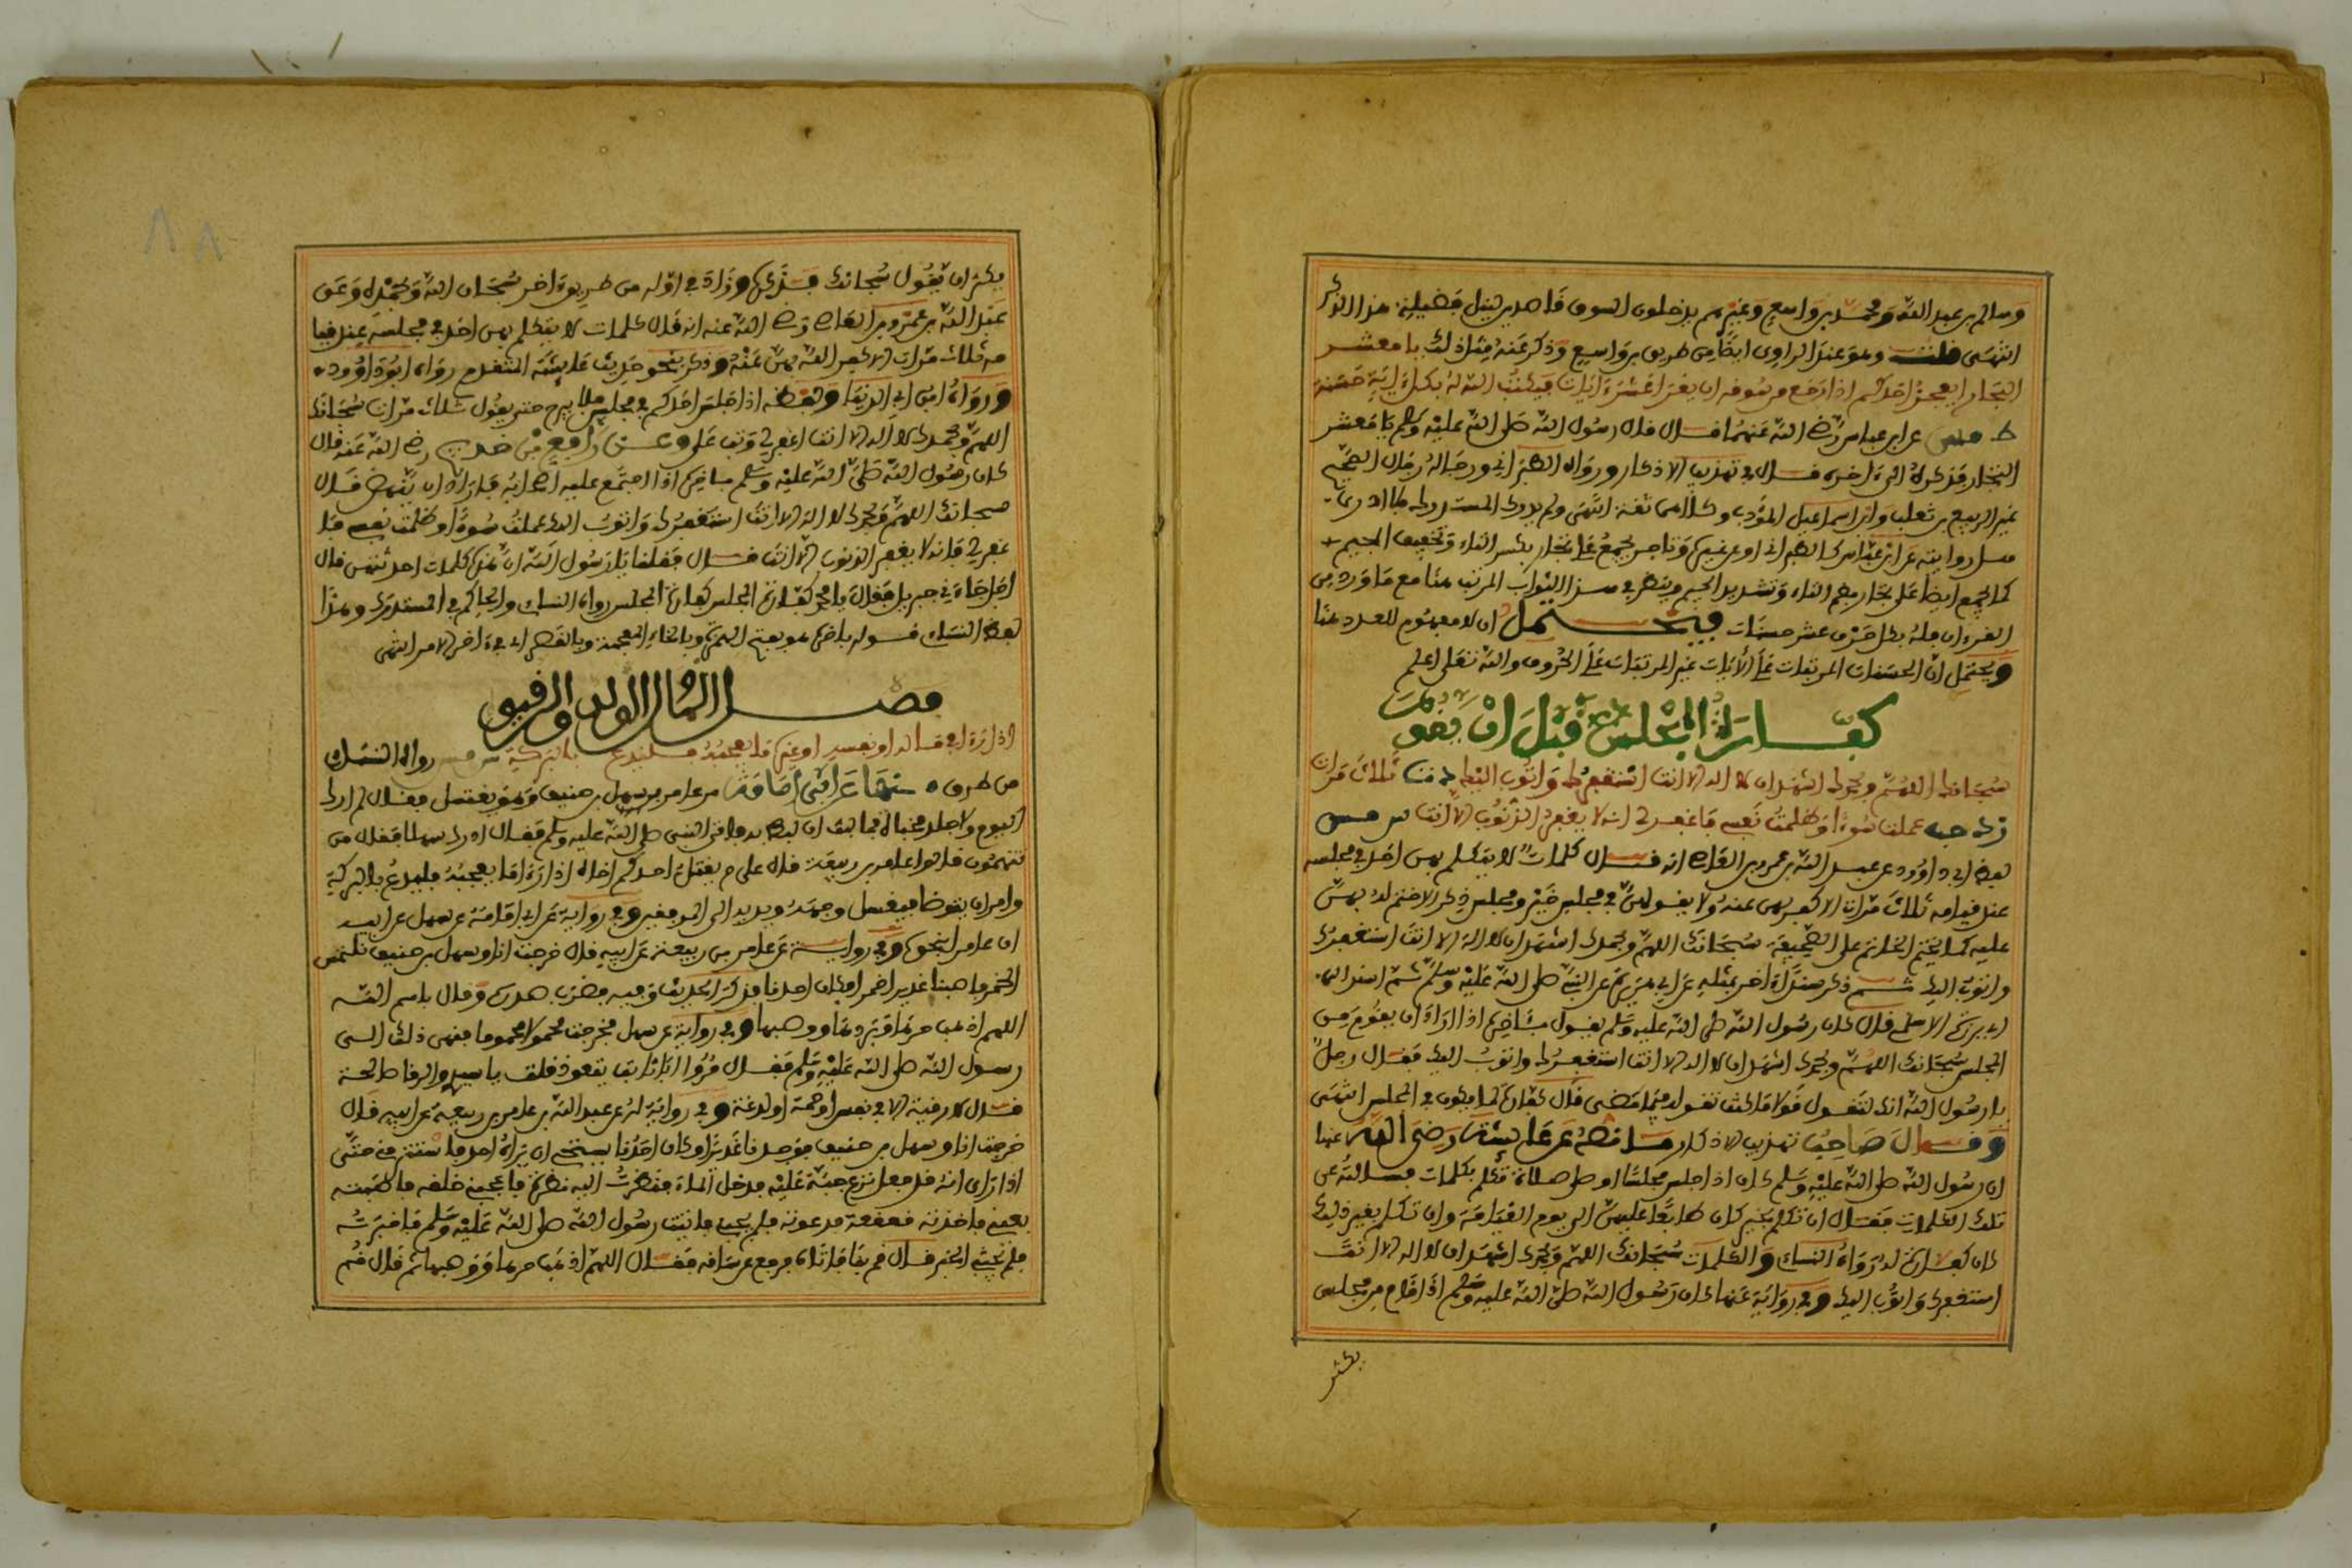 وسالم بن عبد الله ومحمد بن واسع وغيرهم يدخلون السوق قاصدين لنيل فضيلة هذا الذكر
انتهى قلت وهو عند الراوي ايضا من طريق بن واسع وذكر عنه مثل ذلك يا معشر
التجار ايعجز احدكم اذا رجع من سوقه ان يقرا عشر ايات فيكتب الله له بكل اية حسنة
ط عن ابن عباس رضي الله عنهما قال قال رسول الله صلى الله عليه وسلم يا معشر
التجار فذكره الى اخره قال في تهذيب الاذكار ورواه الطبراني ورجاله رجال الصحيح
غير الربيع بن ثعلب وابي اسماعيل المؤدب وكلاهما ثقة انتهى
كما يجمع ايضا على تجار بضم التاء وتشديد الجيم وينظر في هذا الثواب المرتب هنا مع ما ورد من
القرءان فله بكل حرف عشر حسنات فيحتمل ان لا مفهوم للعدد هنا
ويحتمل ان الحسنات المرتبات على الايات غير المرتبات على الحروف والله تعلى اعلم
كفارة المجلس قبل ان يقوم
سبحانك اللهم وبحمدك اشهد ان لا اله الا انت استغفرك واتوب اليك ثلاث مرات
عملت سوءا وظلمت نفسي فاغفر لي انه لا يغفر الذنوب الا انت س مس
لفظ ابي داوود عن عبد الله بن عمرو بن العاص انه قال كلمات لا يتكلم بهن احد في مجلسه
عند قيامه ثلاث مرات الا كفر بهن عنه ولا يقولهن في مجلس خير ومجلس ذكر الا ختم له بهن
عليه كما يختم الخاتم على الصحيفة سبحانك اللهم وبحمدك اشهد ان لا اله الا انت استغفرك
واتوب اليك ثم ذكر سندا اخر بمثله عن ابي هريرة عن النبي صلى الله عليه وسلم ثم اسند الى
ابي برزة الاسلمي قال كان رسول الله صلى الله عليه وسلم يقول باخرة اذا اراد ان يقوم من
المجلس سبحانك اللهم وبحمدك اشهد ان لا اله الا انت استغفرك واتوب اليك فقال رجل
يا رسول الله انك لتقول قولا ما كنت تقوله فيما مضى قال كفارة لما يكون في المجلس انتهى
وقال صاحب تهذيب الاذكار ما نصه عن عايشة رضي الله عنها
ان رسول الله صلى الله عليه وسلم كان اذا جلس مجلسا او صلى صلاة تكلم بكلمات فسالته عن
تلك الكلمات فقال ان تكلم بخير كان طابعا عليهن الى يوم القيامة وان تكلم بغير ذلك
كان كفارة له رواه النسائي والكلمات سبحانك اللهم وبحمدك اشهد ان لا اله الا انت
استغفرك واتوب اليك وفي رواية عنها كان رسول الله صلى الله عليه وسلم اذا اقام من مجلس
يكثر
يكثر ان يقول سبحانك فذكره وزاد في اوله من طريق اخر سبحان الله وبحمده وعن
عبد الله بن عمرو بن العاص رضي الله عنه انه قال كلمات لا يتكلم بهن احد في مجلسه عند قيا
مه ثلاث مرات الا كفر الله بهن عنه وذكر نحو حديث عايشة المتقدم رواه ابو داوود
ورواه ابن ابي الدنيا ولفظه اذا جلس احدكم في مجلس فلا يبرح حتى يقول ثلاث مرات سبحانك
اللهم وبحمدك لا اله الا انت اغفر لي وتب علي وعن رافع بن خديج رضي الله عنه قال
كان رسول الله صلى الله عليه وسلم باخرة اذا اجتمع عليه اصحابه فاراد ان ينهض قال
سبحانك اللهم وبحمدك لا اله الا انت استغفرك واتوب اليك عملت سوءا وظلمت نفسي فا
غفر لي فانه لا يغفر الذنوب الا انت قال فقلنا يا رسول الله ان هذه كلمات احدثتهن قال
اجل جاءني جبريل فقال يا محمد كفارة المجلس كفارة المجلس رواه النسائي والحاكم في المستدرك وهذا
لفظ النسائي قوله باخرة هو بفتح الهمزة وبالخاء المعجمة وبالقصر اي في اخر الامر انتهى
فصل المال الولد والرفيق
اذا راى في ماله او نفسه او غيره ما يعجبه فليدع بالبركة س رواه النسائي
من طرق منها عن ابي امامة مر عامر بسهل بن حنيف وهو يغتسل فقال لم ار ك
اليوم ولا جلد مخباة فما لبث ان لبط به فاتى النبي صلى الله عليه وسلم فقال ادرك سهلا فقال من
تتهمون قالوا عامر بن ربيعة قال علام يقتل احدكم اخاه اذا راى ما يعجبه فليدع بالبركة
وامر ان يتوضا فيغسل وجهه ويديه الى المرفقين وفي رواية عن ابي امامة عن سهل عن ابيه
ان عامرا نحوه وفي رواية عن عامر بن ربيعة عن ابيه قال خرجت انا وسهل بن حنيف نلتمس
الخمر فاصبنا غديرا خمرا وكان احدنا فذكر الحديث وفيه فضرب صدري وقال باسم الله
اللهم اذهب حرها وبردها ووصبها وفي رواية عن سهل فخرجت محموما فنمى ذلك الى
رسول الله صلى الله عليه وسلم فقال مروا ابا ثابت يتعوذ فقلت يا سيدي والرقا صالحة
قال لا رقية الا في نفس او حمة او لدغة وفي رواية له عن عبد الله بن عامر بن ربيعة عن ابيه قال
خرجت انا وسهل بن حنيف فوجدنا غديرا وكان احدنا يستحي ان يراه احد فاستتر مني حتى
اذا راى انه قد فعل نزع جبة عليه فدخل الماء فنظرت اليه نظرة فاعجبني خلقه فاصبته
بعيني فاخذته قعقعة فدعوته فلم يجبني فاتيت رسول الله صلى الله عليه وسلم فاخبرته
الخبر فقال قم بنا فاتاه فرفع عن ساقه فقال اللهم اذهب حرها ووصبها ثم قال قم